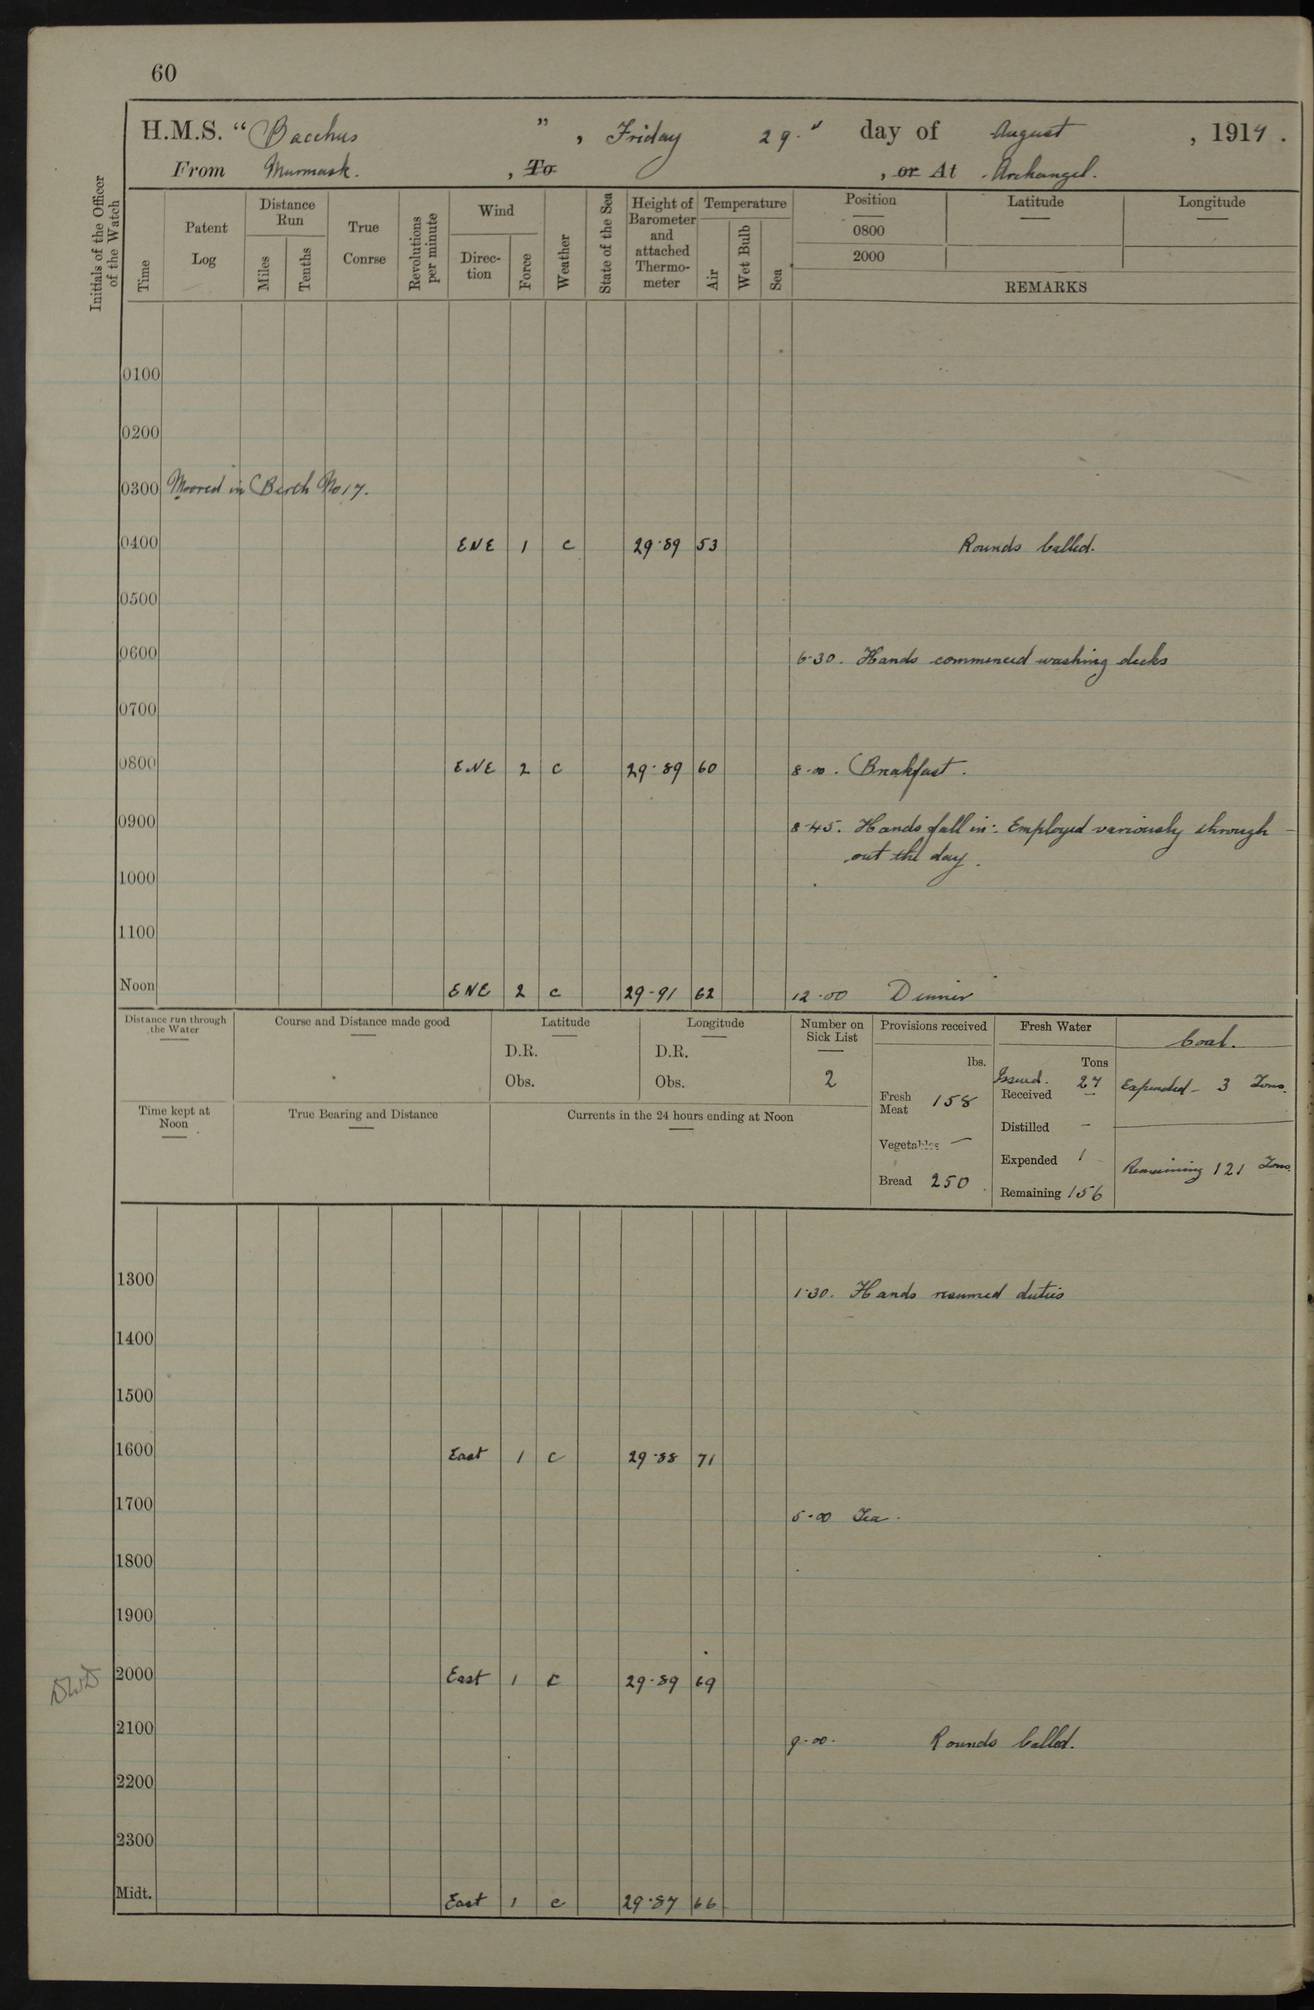 60
H.M.S. "Bacchus", Friday 29th day of August, 1919.
From Murmansk. , To , or At Archangel.
Initials of the Officer of the Watch
Time
Patent Log
Distance Run
Miles
Tenths
True Conrse
Revolutions per minute
Wind
Direc-tion
Force
Weather
State of the Sea
Height of Barometer and attached Thermo-meter
Temperature
Air
Wet Bulb
Sea
Position
0800
2000
Latitude
Longitude
REMARKS
0100
0200
0300 Moored in Berth No 17.
0400 ENE 1 c 29·89 53 Rounds Called.
0500
0600 6·30. Hands commenced washing decks
0700
0800 ENE 2 c 29·89 60 8·00. Breakfast.
0900 8·45. Hands fall in: Employed variously through-
out the day.
1000
1100
Noon ENE 2 c 29·91 62 12·00 Dinner
Distance run through the Water
Course and Distance made good
Latitude
D.R.
Obs.
Longitude
D.R.
Obs.
Number on Sick List
2
Provisions received
lbs.
Fresh Meat 158
Vegetables —
Bread 250
Fresh Water
Tons
Issued. 27
Received —
Distilled —
Expended 1
Remaining 156
Coal.
Expended - 3 Tons.
Remaining 121 Tons.
Time kept at Noon
True Bearing and Distance
Currents in the 24 hours ending at Noon
1300 1·30. Hands resumed duties
1400
1500
1600 East 1 c 29·88 71
1700 5·00 Tea.
1800
1900
2000 East 1 c 29·89 69
2100 9·00. Rounds Called.
2200
2300
Midt. East 1 c 29·87 66